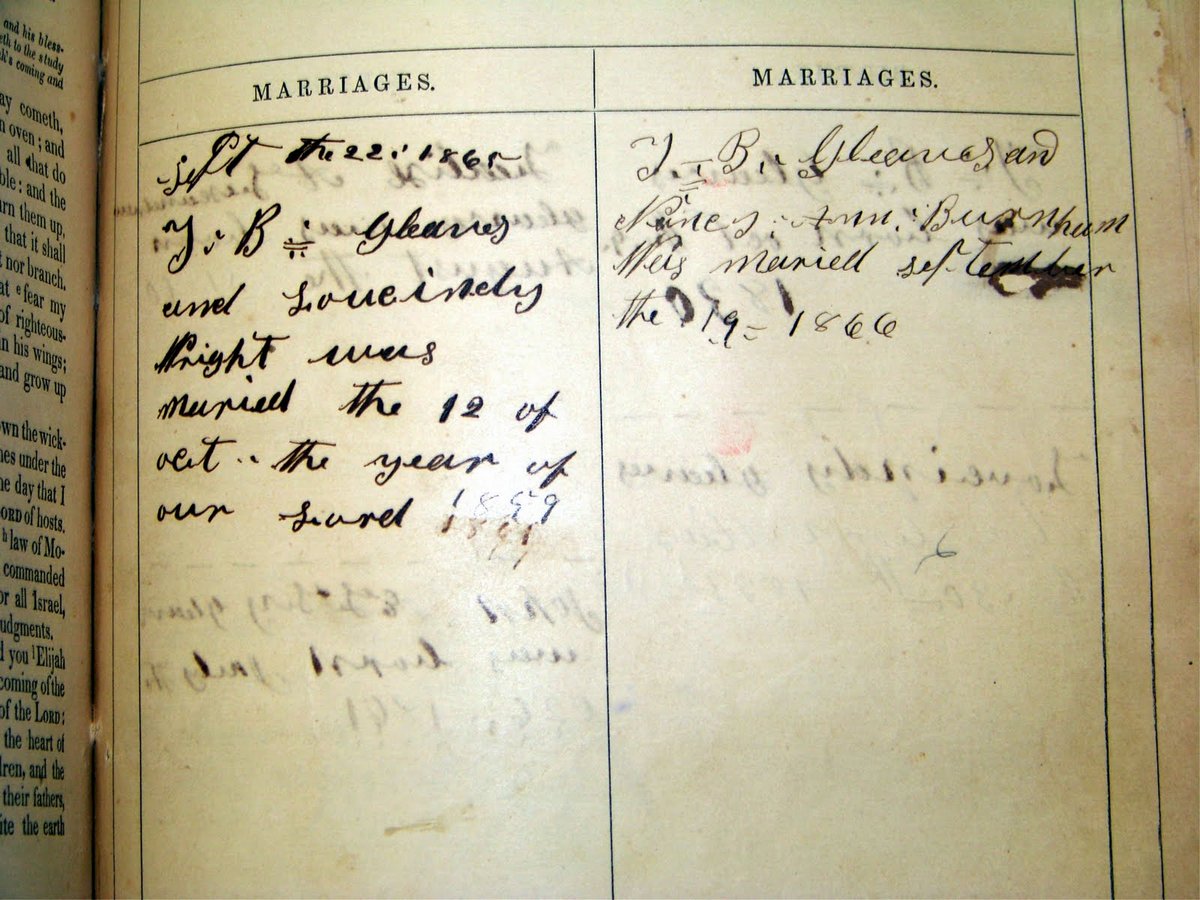 and his bless-
eth to the study
k's coming and
ay cometh,
n oven; and
all that do
ble: and the
rn them up,
that it shall
t nor branch.
at fear my
of righteous-
in his wings;
and grow up
wn the wick-
nes under the
he day that I
ORD of hosts.
law of Mo-
commanded
or all Israel,
udgments.
d you Elijah
coming of the
of the LORD:
the heart of
dren, and the
their fathers,
ite the earth
MARRIAGES.
Sept the 22: 1865
J. B. Gleaves
and Loucindy
Wright was
Maried the 12 of
oct. the year of
our Lord 1859
MARRIAGES.
J. B. Gleaves and
Nancy: Ann: Burnham
Was Maried september
the 19 1866